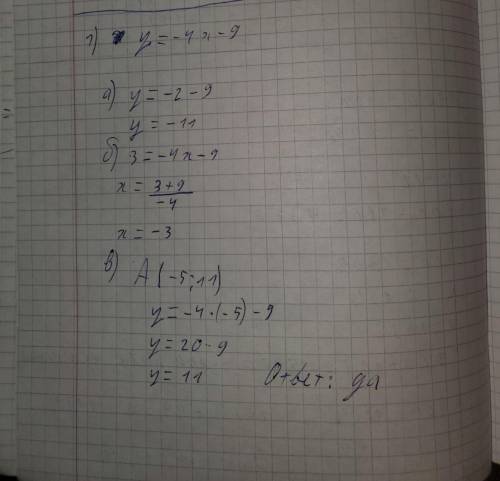 1) y = -4x - 9
а) y = -2 - 9
y = -11
б) 3 = -4x - 9
x = \frac{3+9}{-4}
x = -3
в) A (-5; 11)
y = -4 · (-5) - 9
y = 20 - 9
y = 11 Ответ: да